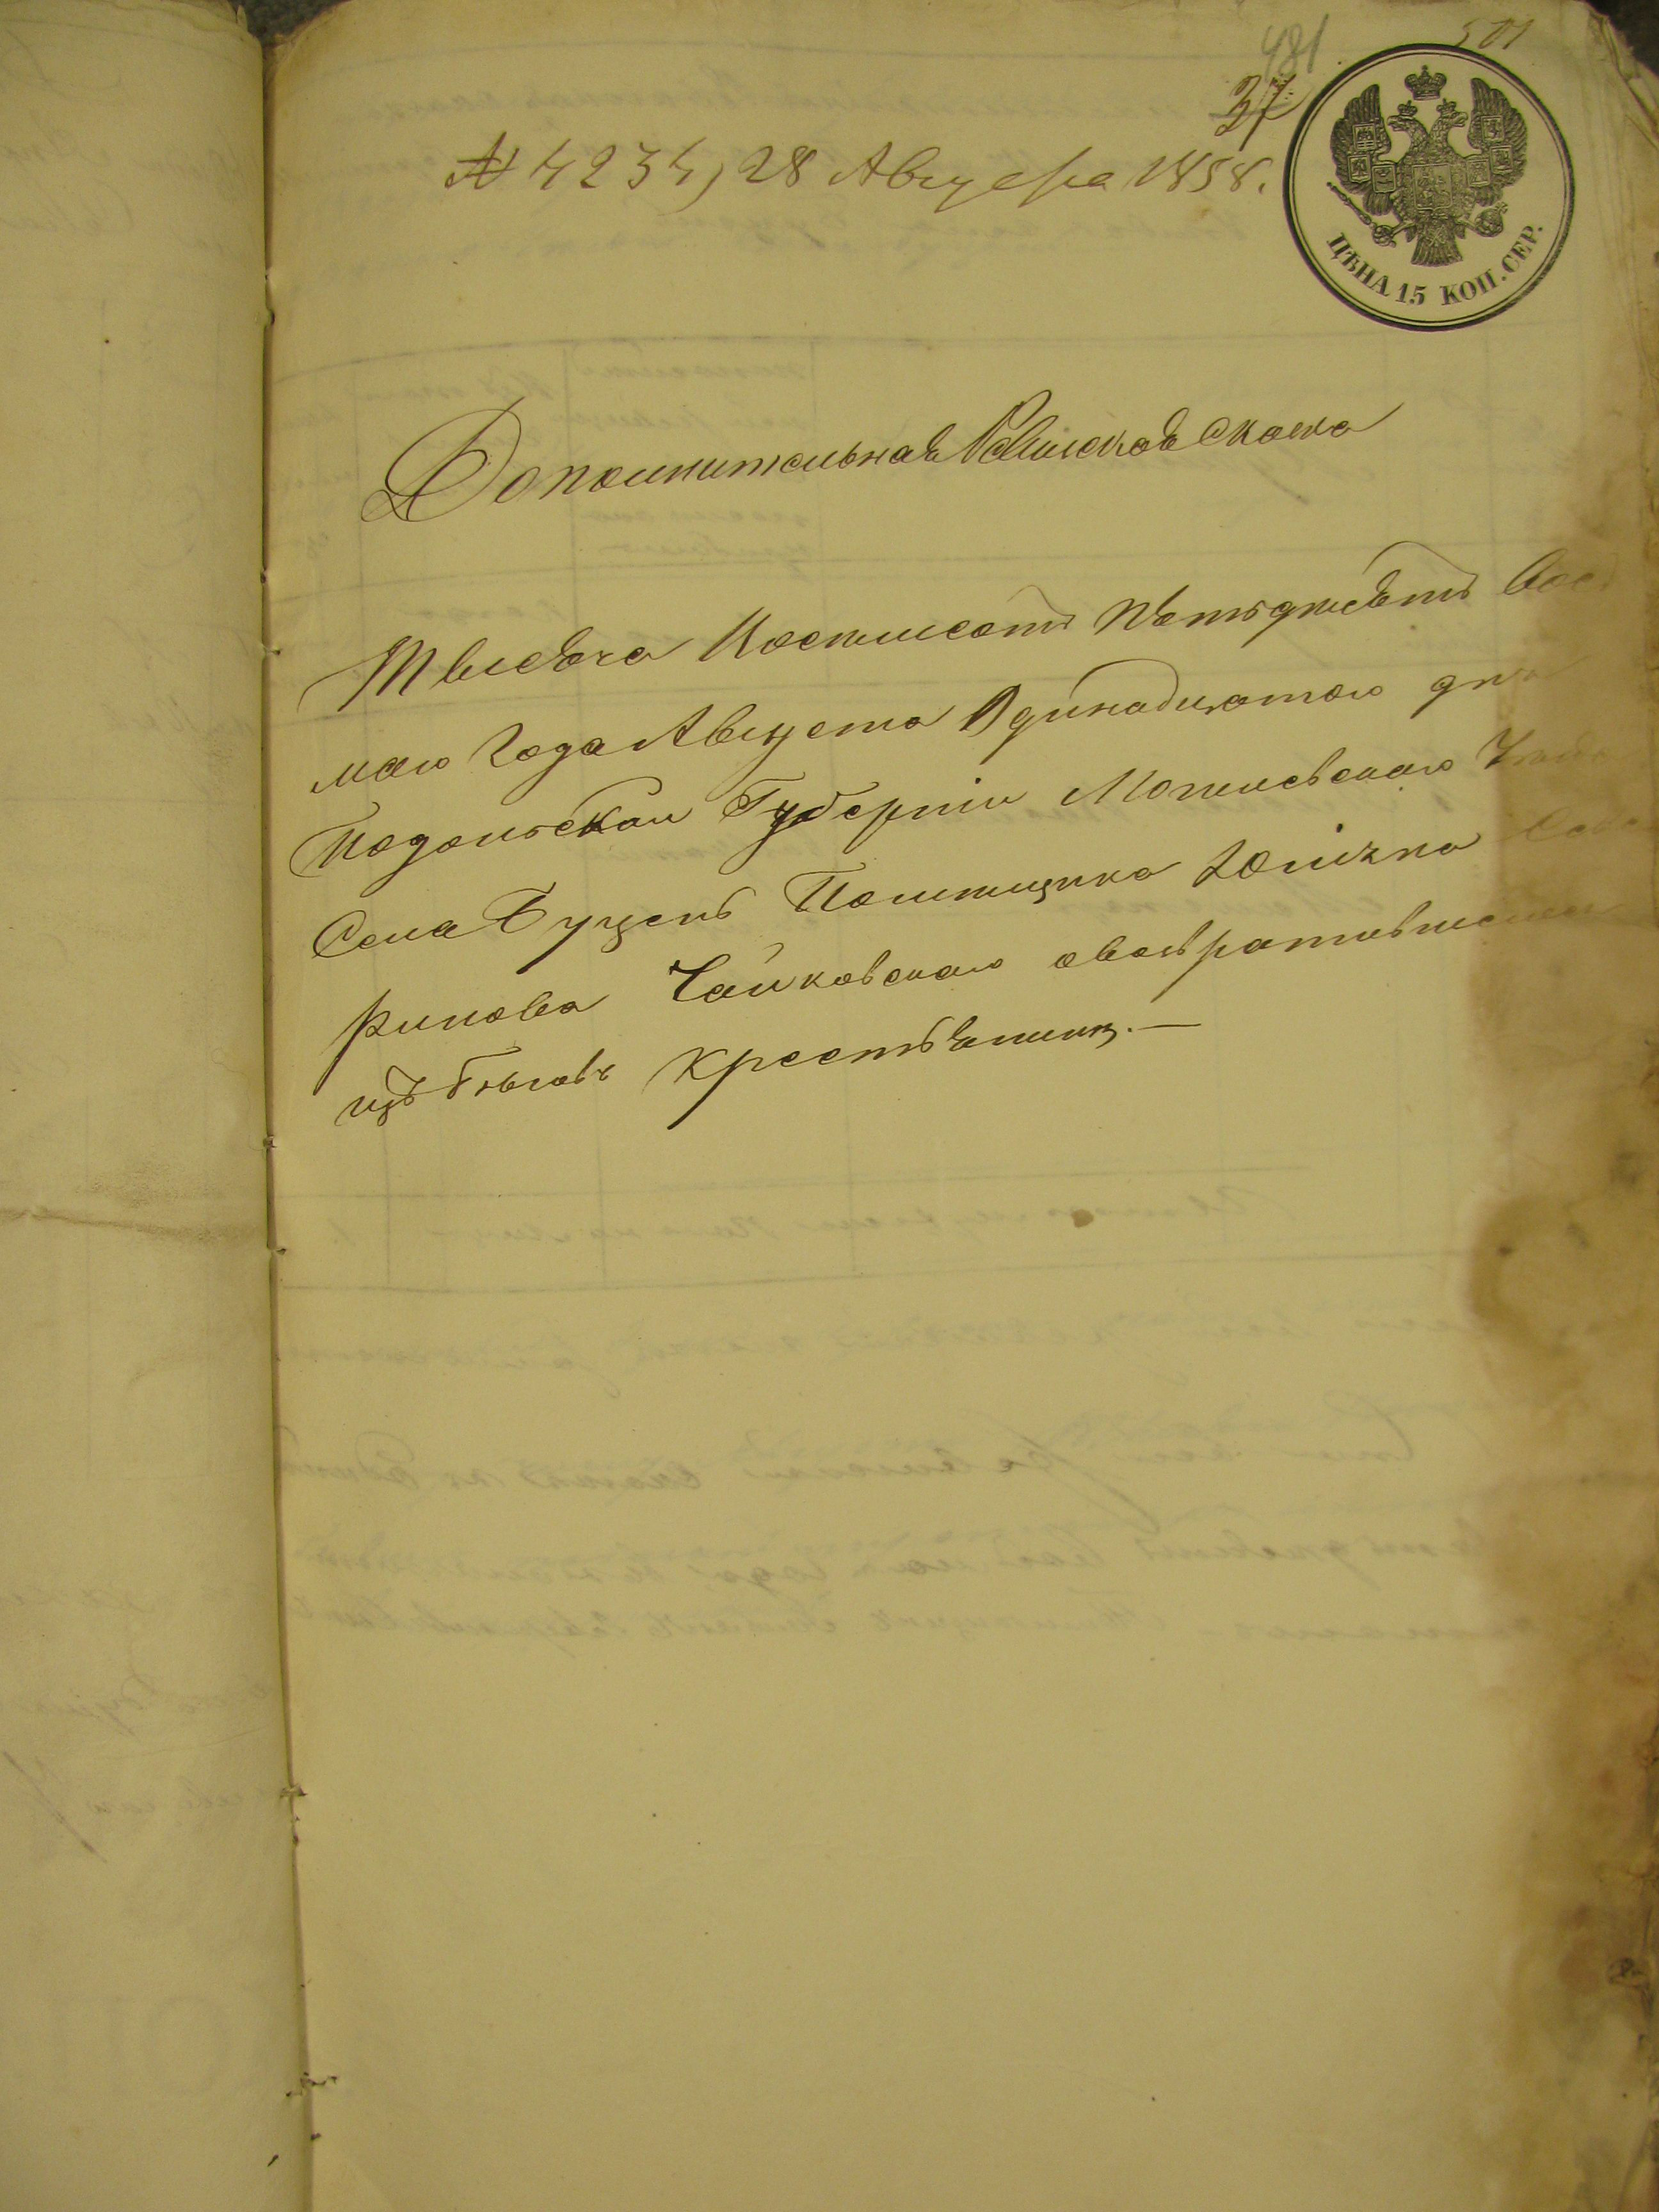 501
481
37
№ 4234, 28 Августа 1858.
ЦѢНА 15 КОП. СЕР.
Дополнительная Ревизская Сказка
Тысяча Восемьсотъ Пятьдесятъ Вось
маго Года Августа Одинадцатаго дня
Подольской Губерніи Могилевскаго Уѣзда
Села Буценъ Помѣщика
Чайковскаго о возвратившемся
изъ бѣговъ Крестьянинѣ.—